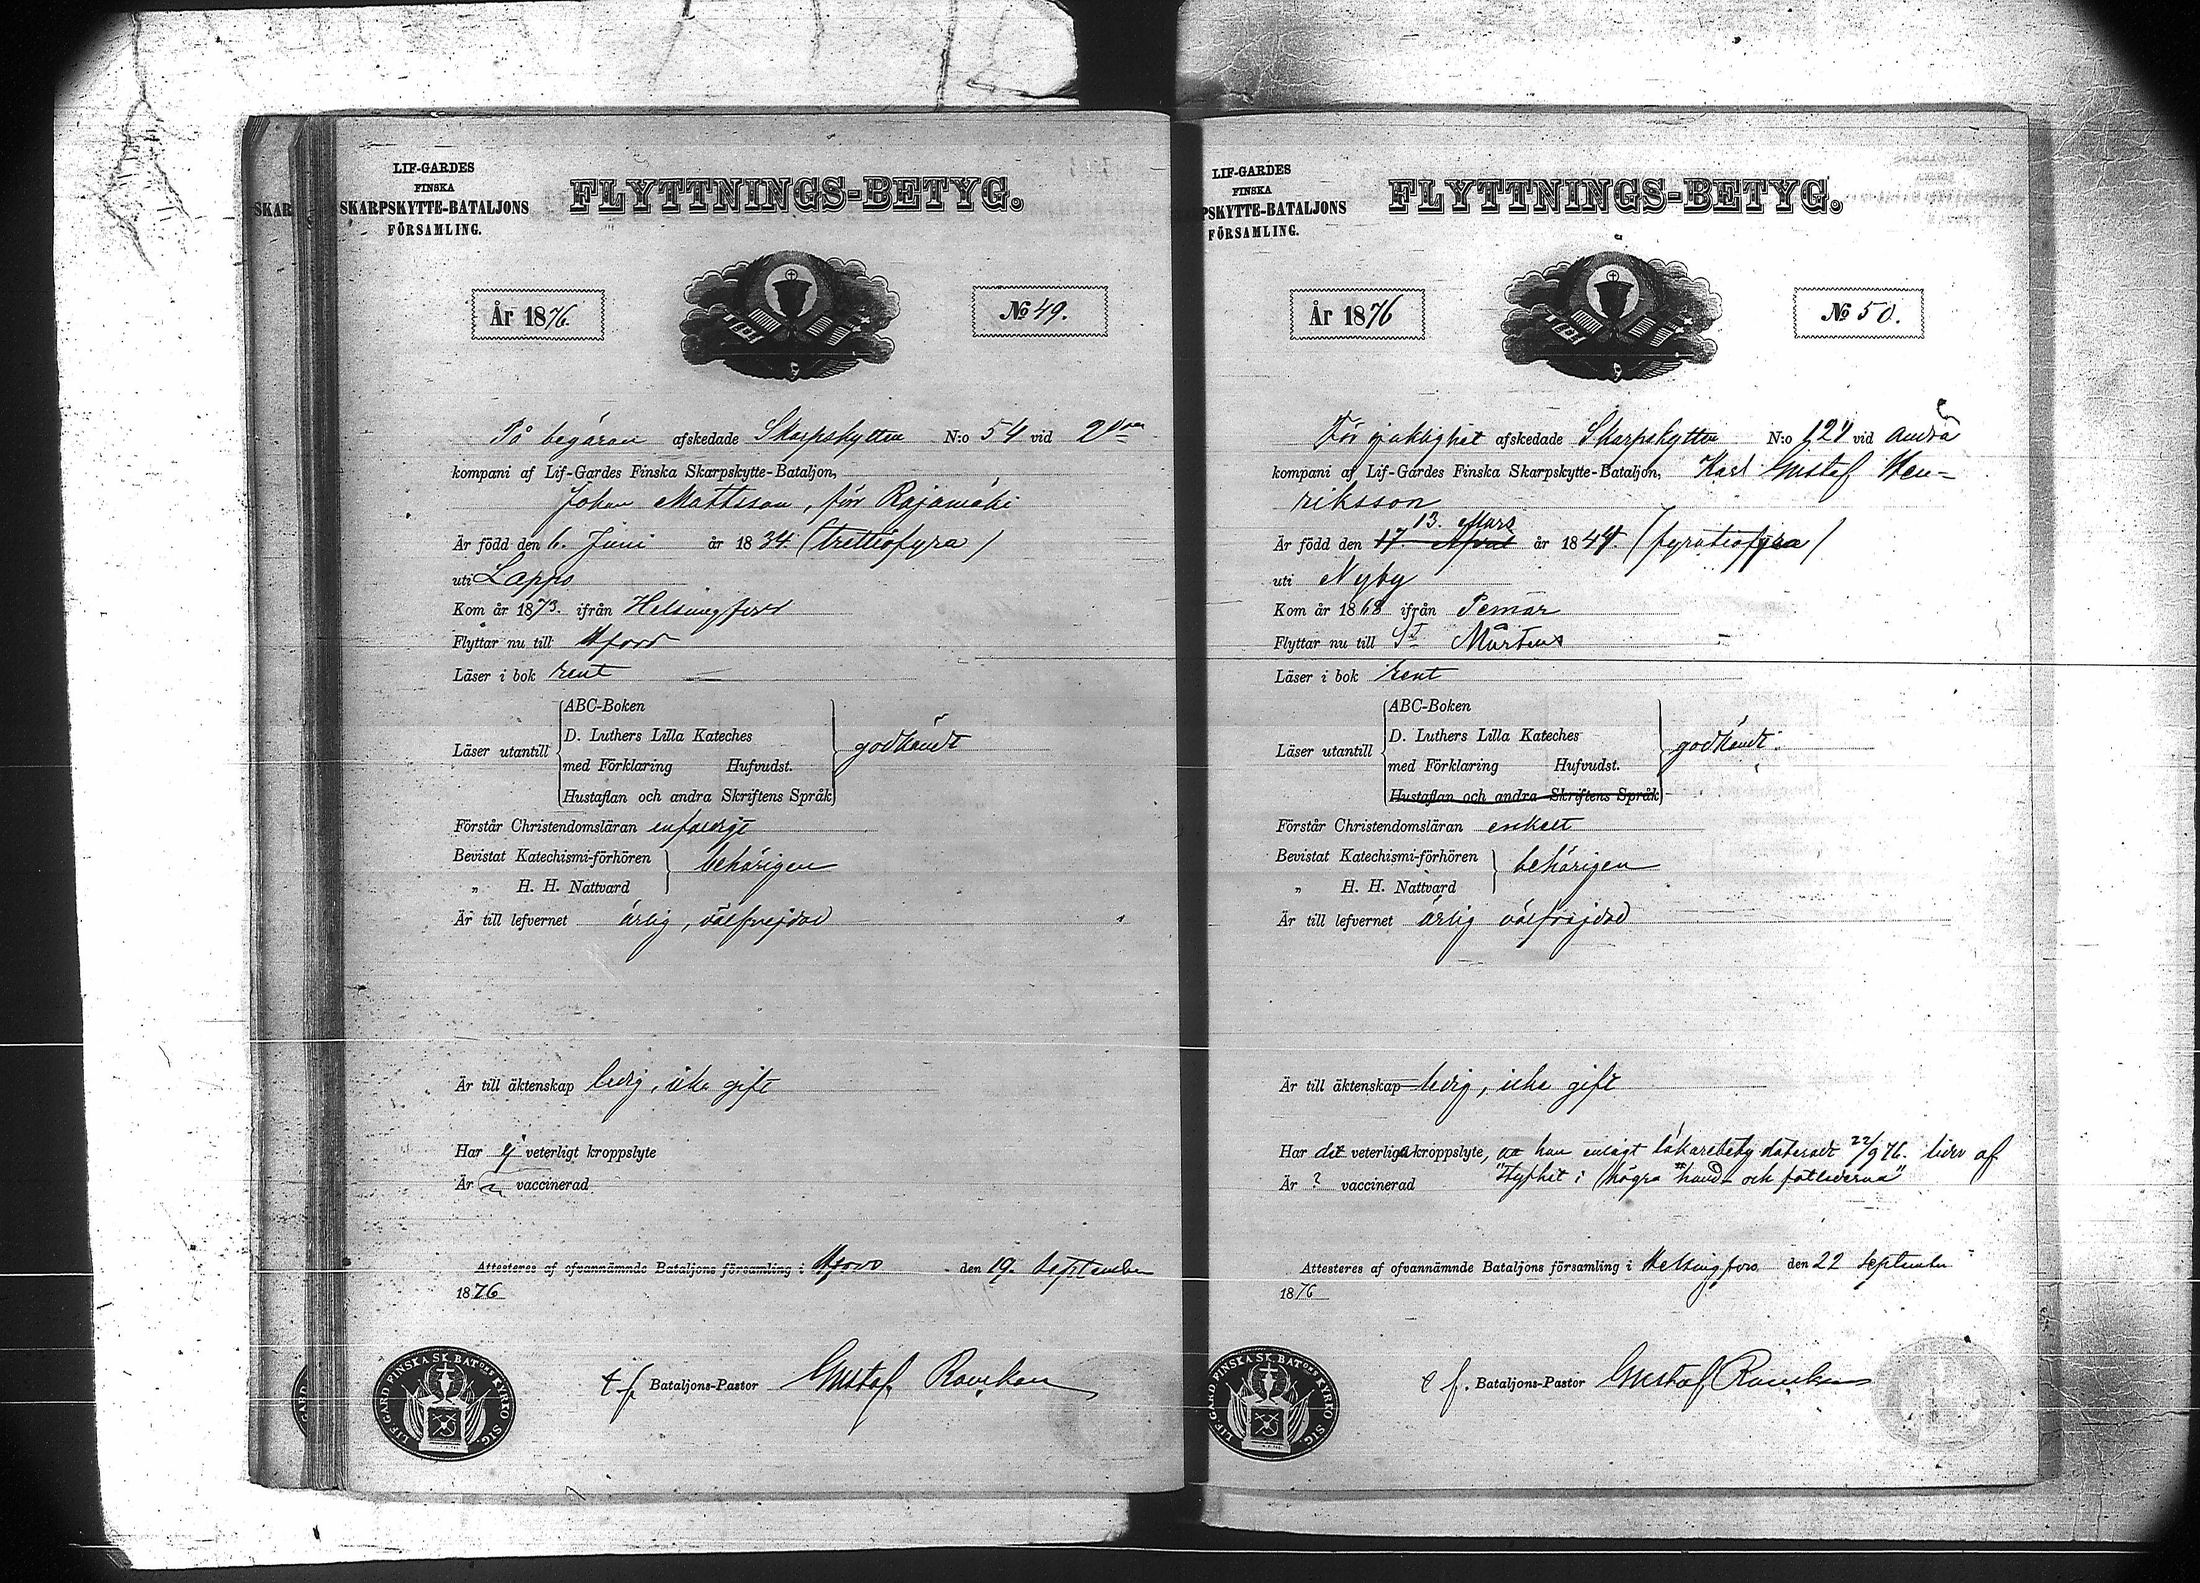 LIF-GARDES
FINSKA
SKARPSKYTTE-BATALJONS
FÖRSAMLING.
FLYTTNINGS-BETYG.
År 1876.
№ 49.
På begäran afskedade Skarpskytten N:o 54 vid 2dra
kompani af Lif-Gardes Finska Skarpskytte-Bataljon,
Johan Mattsson, förr Rajamäki
Är född den 6. Juni år 1834. (trettiofyra)
uti Lappo
Kom år 1873. ifrån Helsingfors
Flyttar nu till
Läser i bok rent
ABC-Boken
D. Luthers Lilla Kateches
Läser utantill
med Förklaring Hufvudst.
Hustaflan och andra Skriftens Språk
godkändt
Förstår Christendomsläran enfaldigt
Bevistat Katechismi-förhören
„ H. H. Nattvard
behörigen
Är till lefvernet ärlig, välfrejdad
Är till äktenskap ledig, icke gift
Har ej veterligt kroppslyte
Är vaccinerad
Attesteras af ofvannämnde Bataljons församling i den 19. September
1876
t. f. Bataljons-Pastor Gustaf
LIF. GARD FINSKA SK. BATONS KYRKO SIG.
SKAR
LIF-GARDES
FINSKA
PSKYTTE-BATALJONS
FÖRSAMLING.
FLYTTNINGS-BETYG.
År 1876
№ 50.
För sjuklighet afskedade Skarpskytten N:o 121 vid andra
kompani af Lif-Gardes Finska Skarpskytte-Bataljon, Karl Gustaf Hen-
riksson
13. Mars
Är född den 17. April år 1844. (fyratiofyra)
uti Nyby
Kom år 1868 ifrån Pemar
Flyttar nu till St Mårtens
Läser i bok rent
ABC-Boken
D. Luthers Lilla Kateches
Läser utantill
med Förklaring Hufvudst.
Hustaflan och andra Skriftens Språk
godkändt.
Förstår Christendomsläran enkelt
Bevistat Katechismi-förhören
„ H. H. Nattvard
behörigen
Är till lefvernet ärlig välfrejdad
Är till äktenskap ledig, icke gift
Har det veterliga kroppslyte, att han enligt läkarebetyg dateradt 22/9 76. lider af
Är ? vaccinerad "Styfhet i högra hand- och fotlederna"
Attesteres af ofvannämnde Bataljons församling i Helsingfors den 22 September
1876
t. f. Bataljons-Pastor Gustaf
LIF. GARD FINSKA SK. BATONS KYRKO SIG.